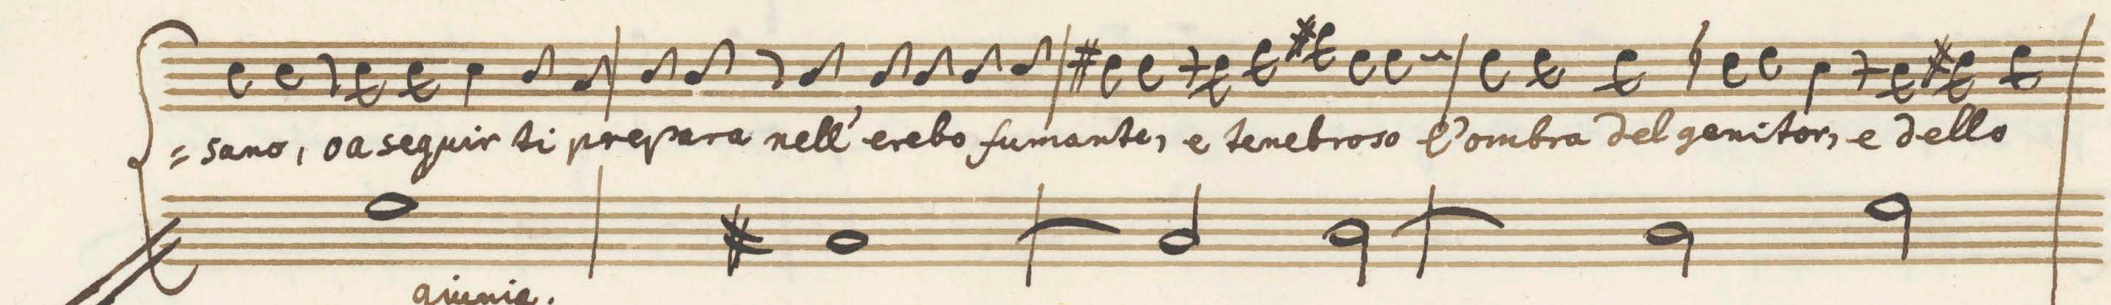 = sano, o a seguir ti prepara nell' erebo fumante, e tenebroso l'ombra del genitor, e dello
giunia.